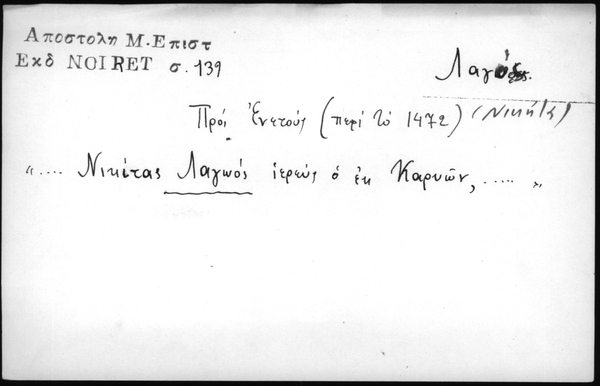 Αποστολη Μ. Επιστ
Εκδ NOIRET σ. 139
Λαγός
Πρός Ἑνετούς (περί τό 1472) (Νικήτας)
".... Νικήτας Λαγωός ἱερεύς ὁ ἐκ Καρυῶν, ..... "